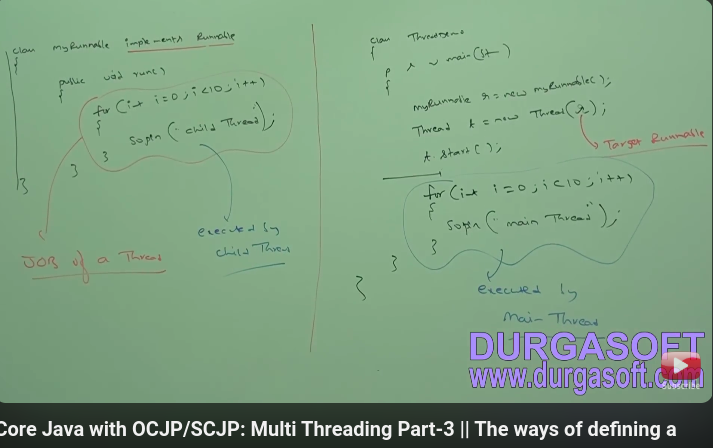 class myRunnable implements Runnable
{
public void run()
{
for (int i=0; i<10; i++)
{
sopln("child Thread");
}
}
}
JOB of a Thread
executed by
child Thread
class ThreadDemo
{
p s v main(St )
{
myRunnable r = new myRunnable();
Thread t = new Thread(r);
Target Runnable
t.start();
for (int i=0; i<10; i++)
{
sopln("main Thread");
}
}
}
executed by
Main Thread
DURGASOFT
www.durgasoft.com
SUBSCRIBE
Core Java with OCJP/SCJP: Multi Threading Part-3 || The ways of defining a